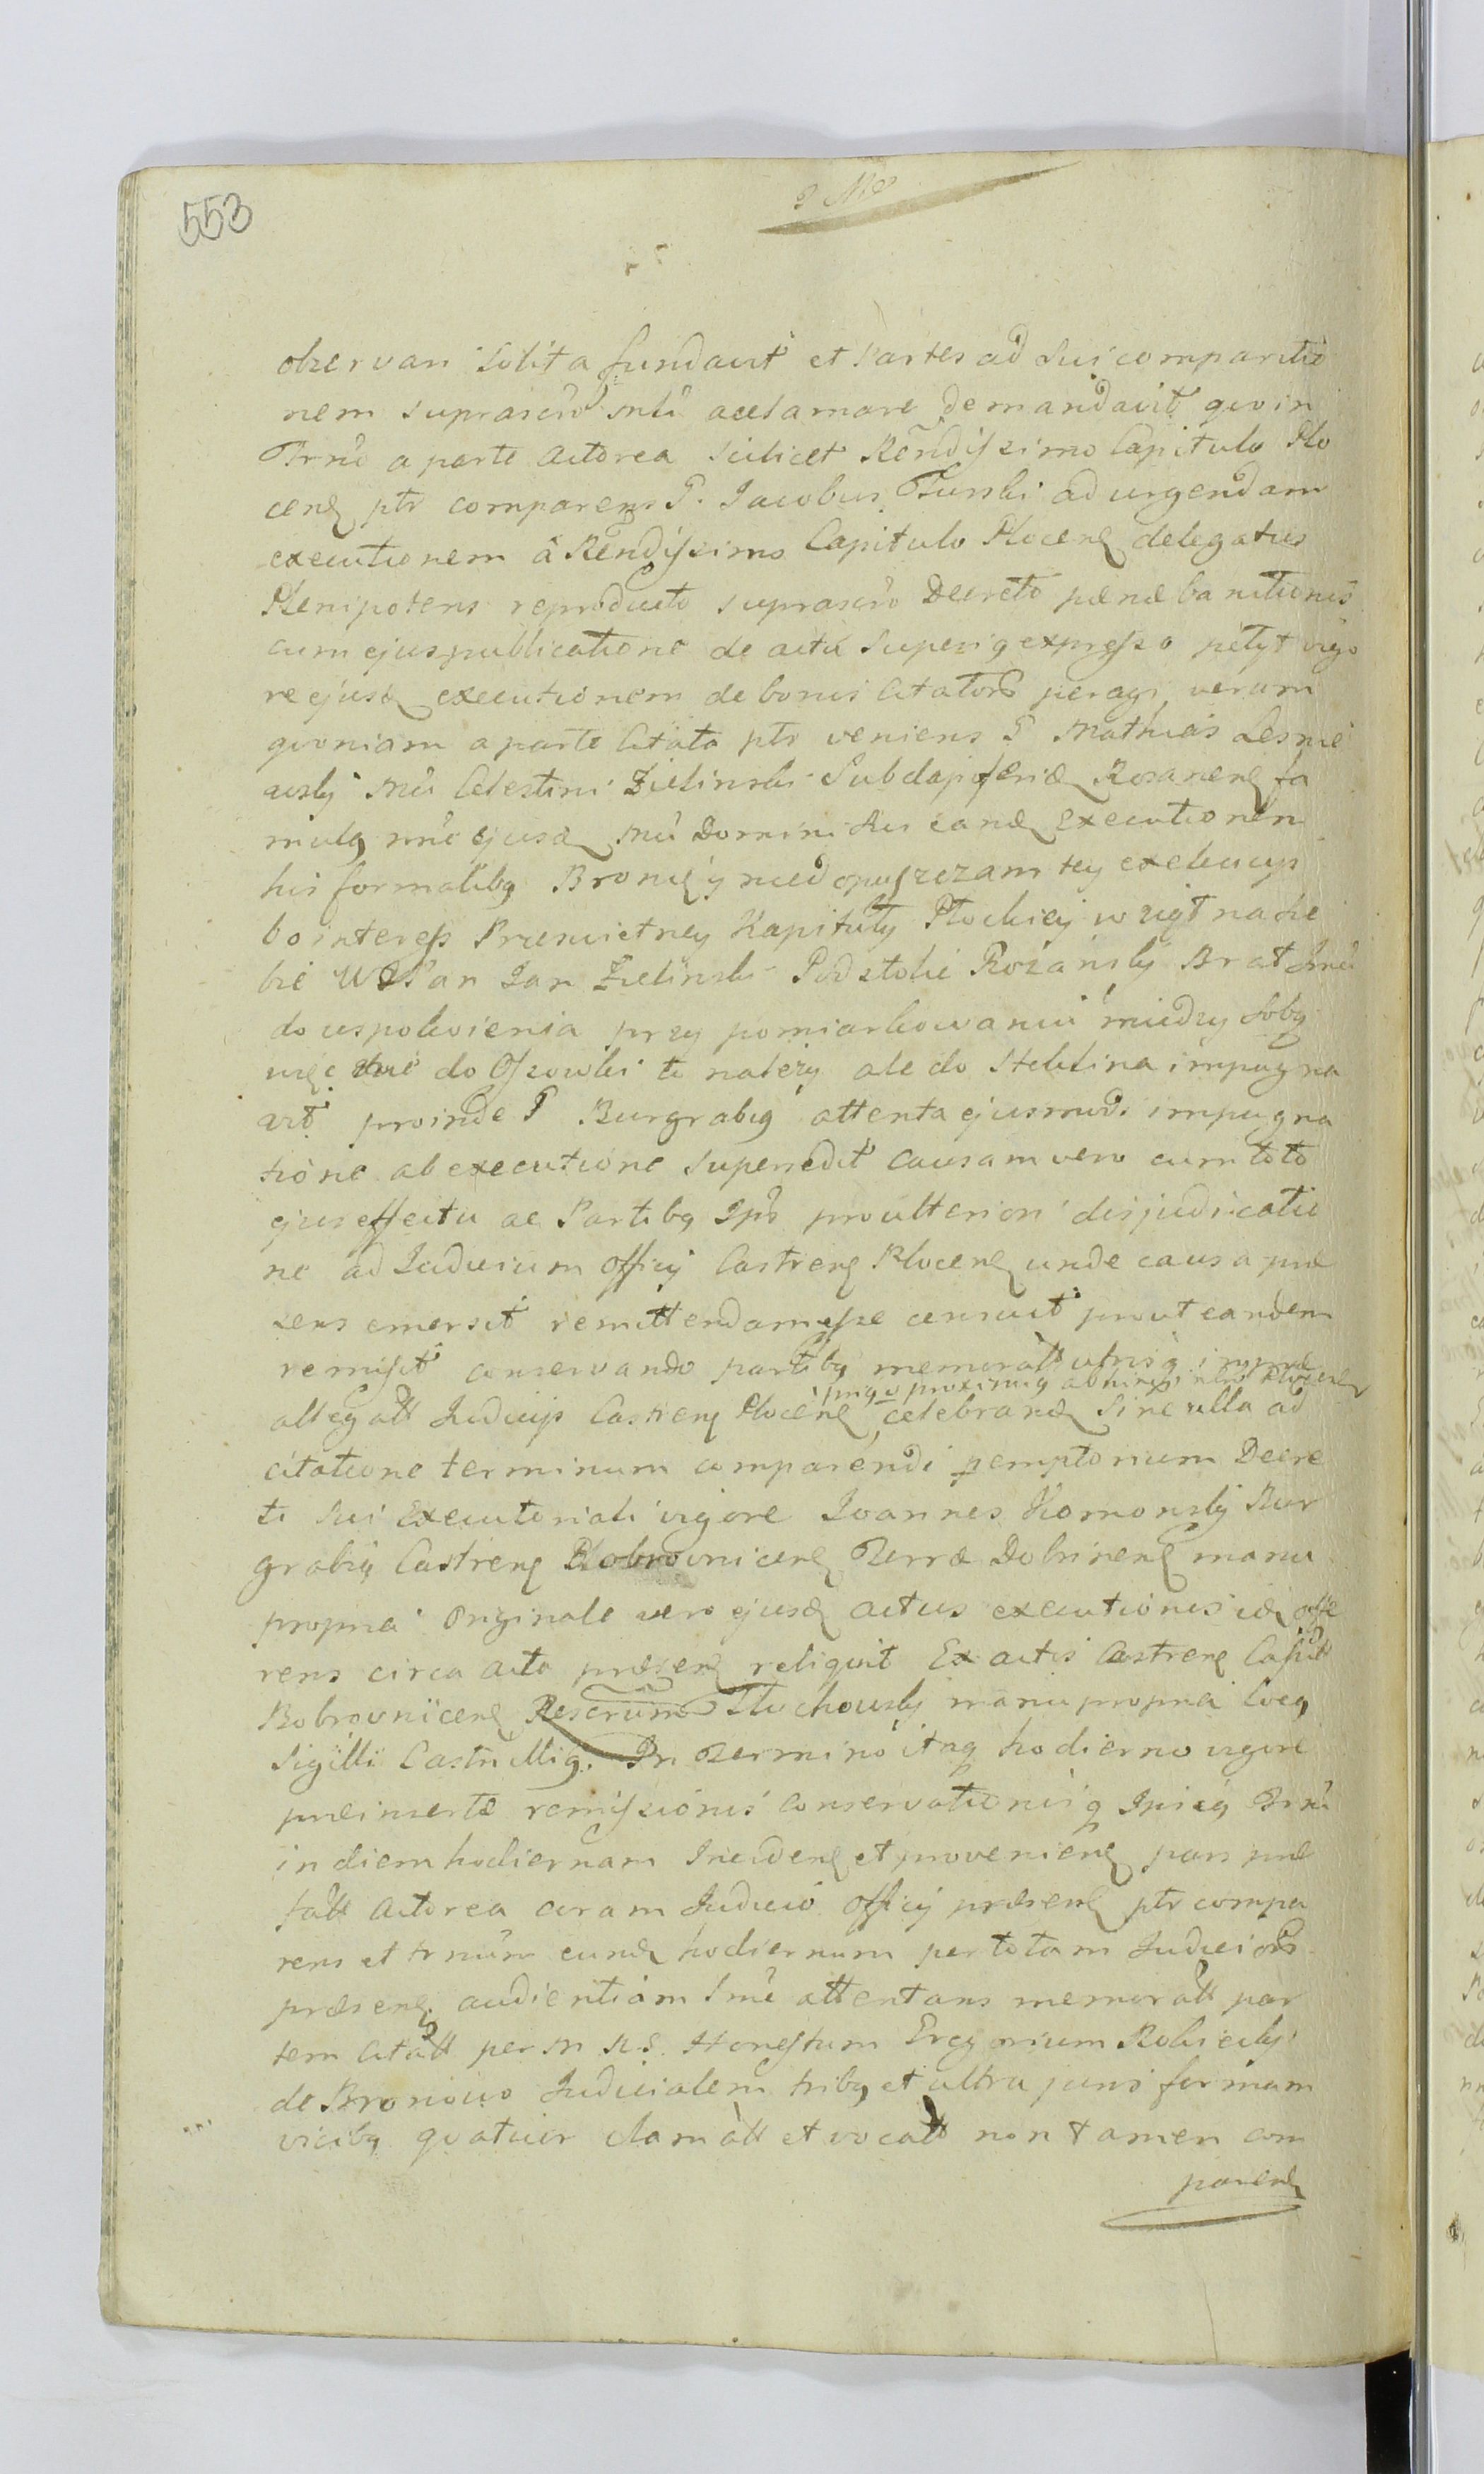 553
observari solita fundavit et Partes ad sui comparitio
nem suprascro mlu acclamare demandavit quo in
Trno a parte Actorea scilicet Rendissimo Capitulo Plo
cen ptr comparens G. Jacobus Turski ad urgendam
executionem â Rendissimo Capitulo Plocen delegatus
Plenipotens reproducto suprascro Decreto pænæ banitionis
cum ejus publicatione de actu Superiq expresso petyt vigo
re ejusd executionem de bonis Citator peragi, verum
quoniam a parte Citata ptr veniens G Mathias Lesnie
wsky Mci Celestini Zielinski Subdapiferid Rosanen fa
mulq nne ejusd Mci Domini sui eand executionem
his formalibq Bronię y niedopuszczam tey exekucyi
bo interess Prześwietney Kapituły Płockiey wziął na sie
bie WJPan Jan Zielinski Podstoli Rożański Brat Jmci
do uspokoienia przy pomiarkowaniu między sobą
więc nie do Ossowki to należy ale do Steklina impugna
vit proinde G Burgrabiq attenta ejusmodi impugna
tione ab executione supersedit causam vero cum toto
ejus effectu ac Partibq Ips pro ulteriori disjudicatio
ne ad Judicium Officij Castren Plocen unde causa præ
sens emersit remittendam esse censuit prout eandem
remisit conservando partibq memoratt utrisq in præ
allegatt Judicijs Castren Plocen celebrand Sine ulla ad
citatione terminum comparendi peremptorium Decre
ti sui Executorialis vigore Joannes Komorsky Bur
grabiq Castren Bobrovnicen Terræ Dobrinen manu
propria Originale vero ejusd actus executionis id offe
rens circa acta præsen reliquit Ex actis Castren Capitt
Bobrovnicen Rescrum Tłuchowsky manu propria Locq
Sigilli Castr Illiq. In Termino itaq hodierno vigore
præinsertæ remissionis conservationisq Ipsiq Trni
in diem hodiernam Inciden et provenien pars præ
fatt Actorea coram Judicio Officij præsen ptr compa
rens et trnum eund hodiernum per totam Judicior
præsen audientiam Smê attentans memoratt par
tem Citatt per M R S. Honestum Gregorium Robiecky
de Bronowo Judicialem tribq et ultra juris formam
vicibq quatuor clamatt et vocatt non tamen com
paren